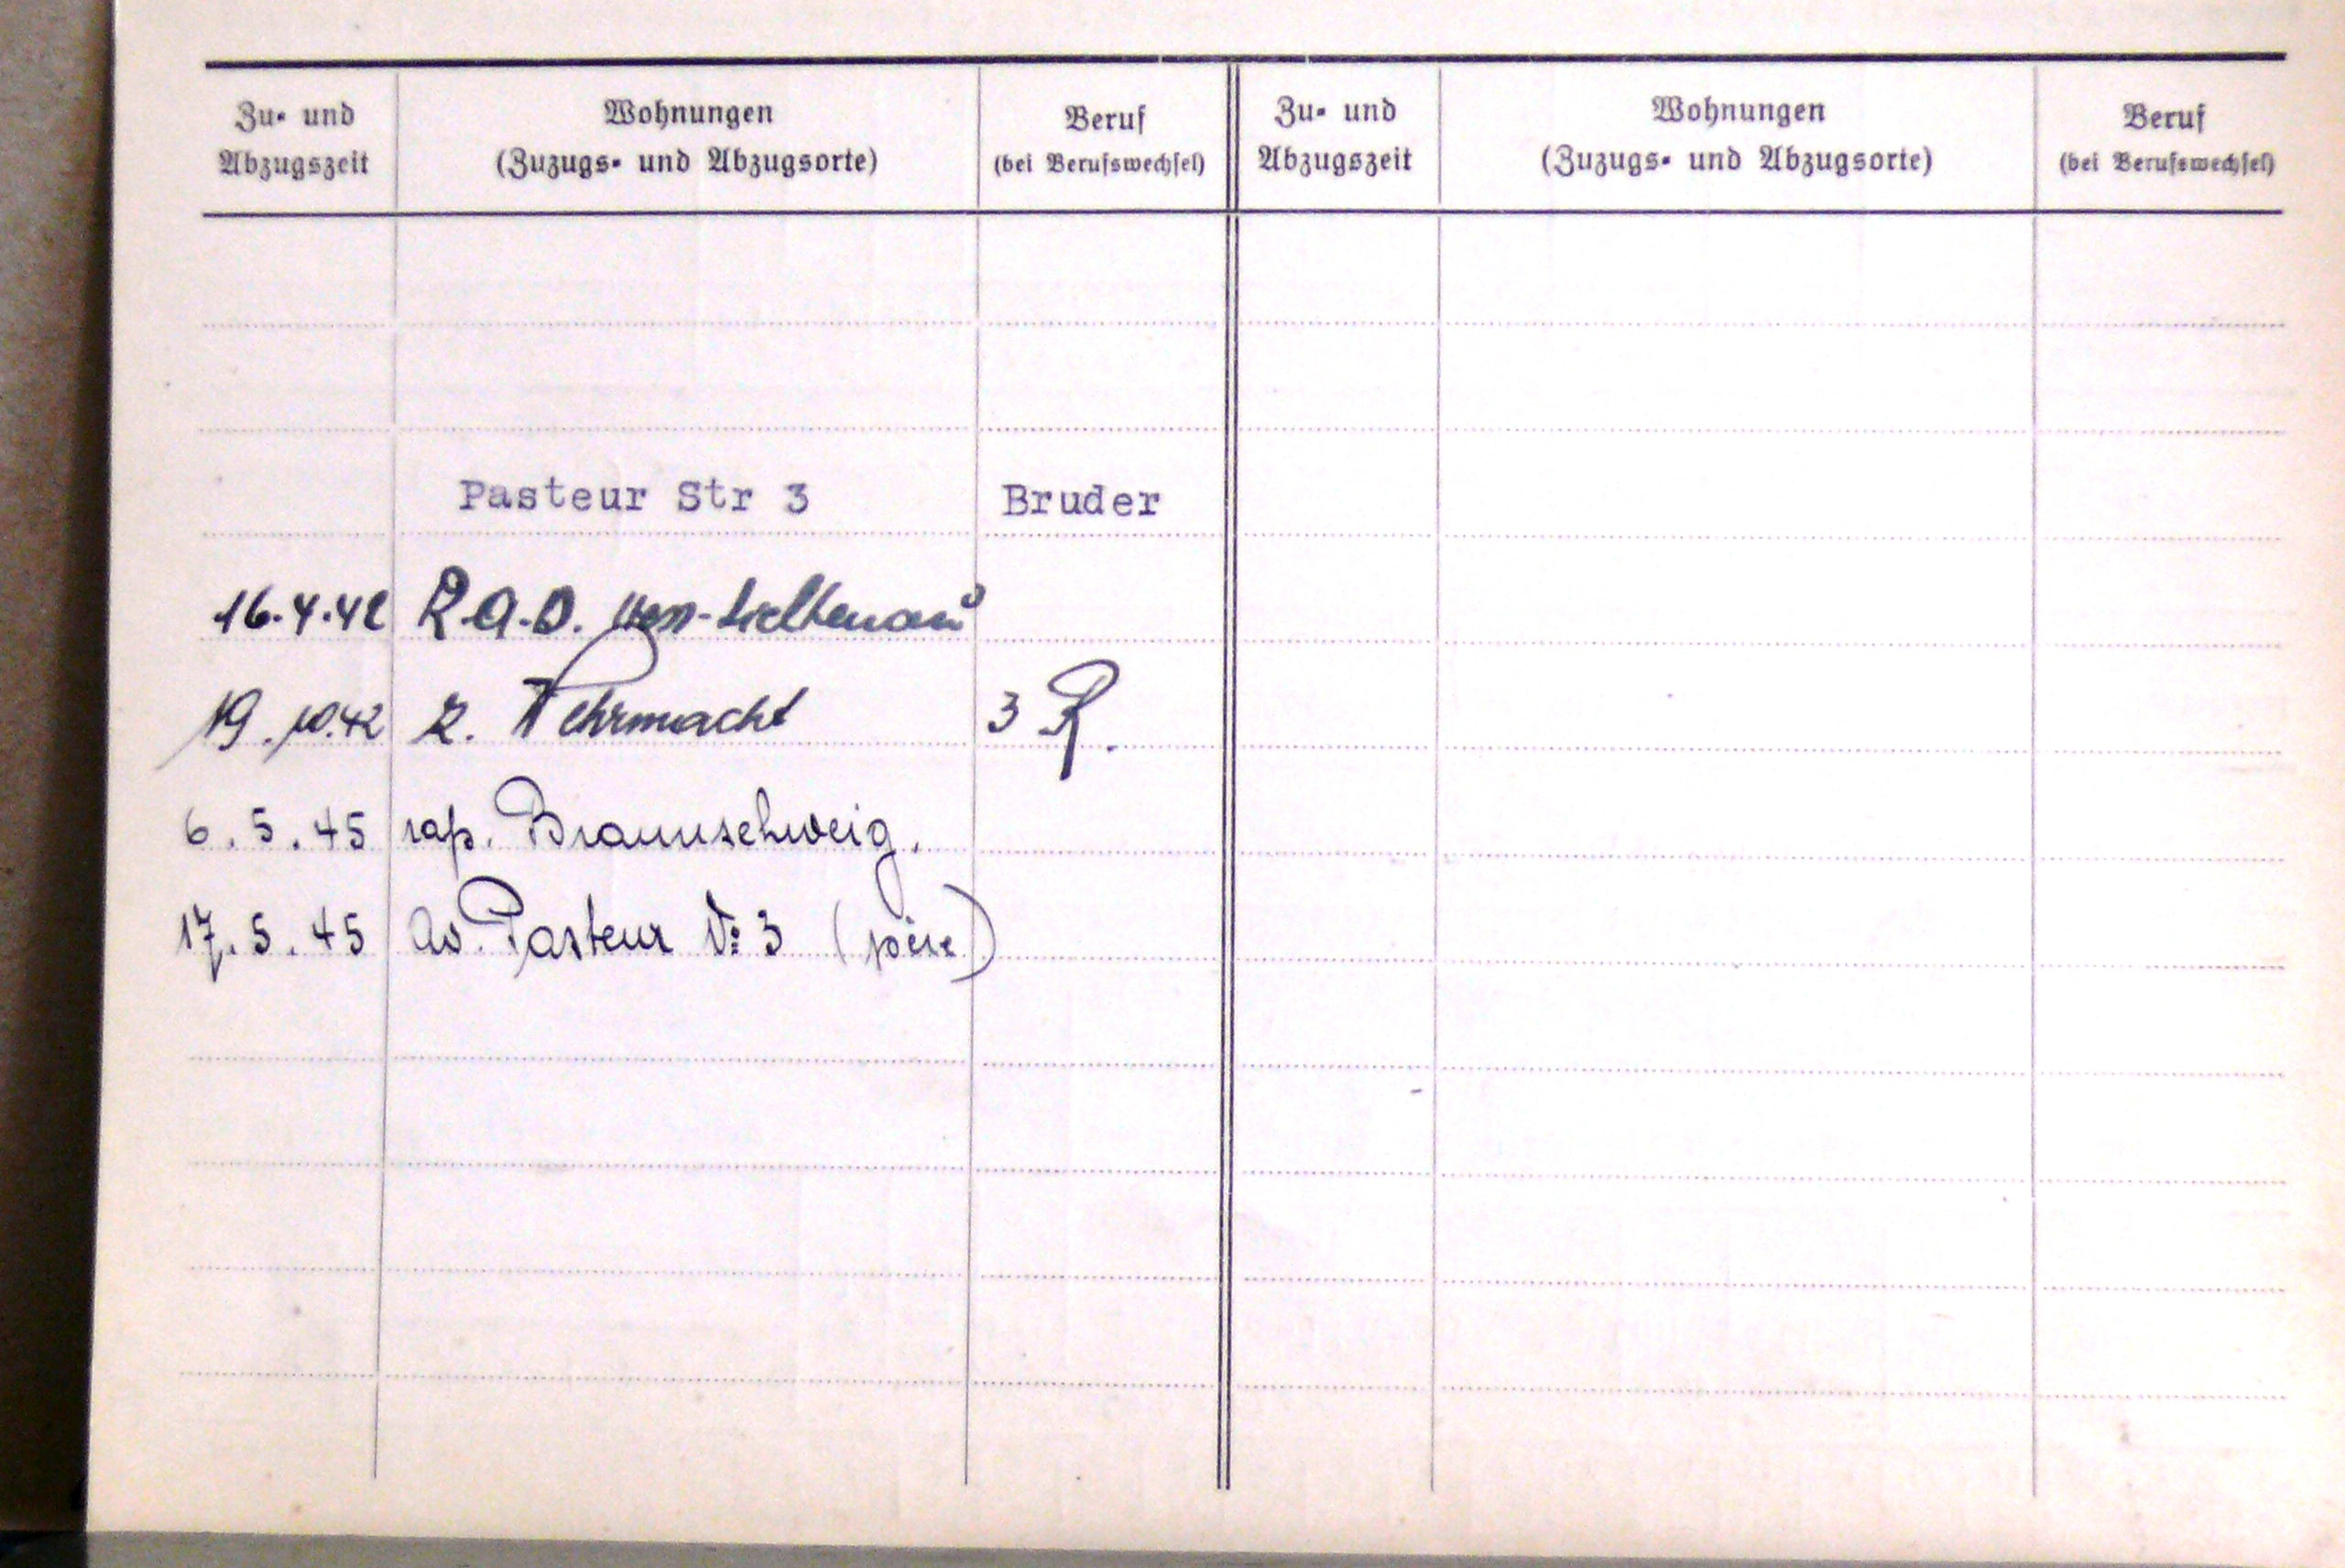 Zu- und Abzugszeit
Wohnungen
(Zuzugs- und Abzugsorte)
Beruf
(bei Berufswechsel)
Zu- und Abzugszeit
Wohnungen
(Zuzugs- und Abzugsorte)
Beruf
(bei Berufswechsel)
Pasteur Str 3 Bruder
16.4.42 R.A.D. Hess-Lichtenau
19.10.42 z. Wehrmacht 3 R.
6.5.45 rap. Braunschweig.
17.5.45 Av. Pasteur No 3 (père)